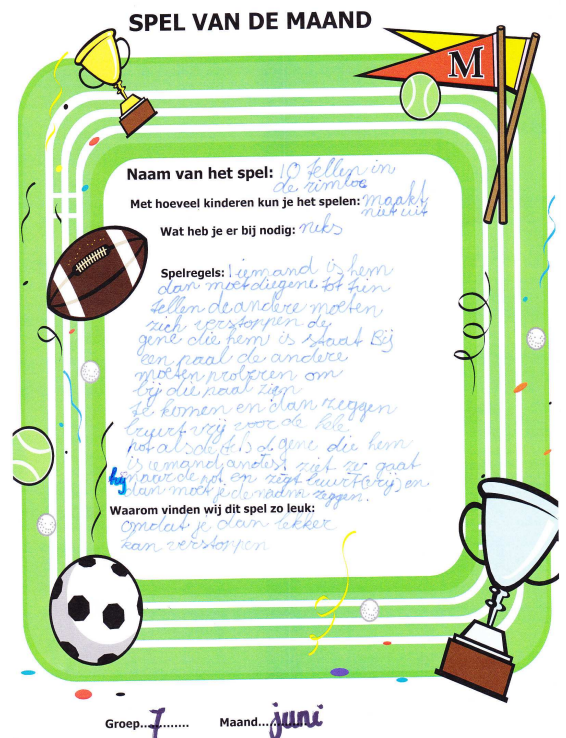 SPEL VAN DE MAAND
M
Naam van het spel: 10 tellen in
de rimboe
Met hoeveel kinderen kun je het spelen: maakt
niet uit
Wat heb je er bij nodig: niks
Spelregels: 1 iemand is hem
dan moet diegene tot tien
tellen de andere moeten
zich verstoppen de
gene die hem is staat Bij
een paal de andere
moeten proberen om
bij die paal zien
te komen en dan zeggen
buurt vrij voor de hele
pot als de gene die hem
is iemand anders ziet ze gaat
hij naar de pot en zegt buurt(vrij) en
dan moet je de naam zeggen.
Waarom vinden wij dit spel zo leuk:
omdat je dan lekker
kan verstoppen
Groep...7......... Maand...juni